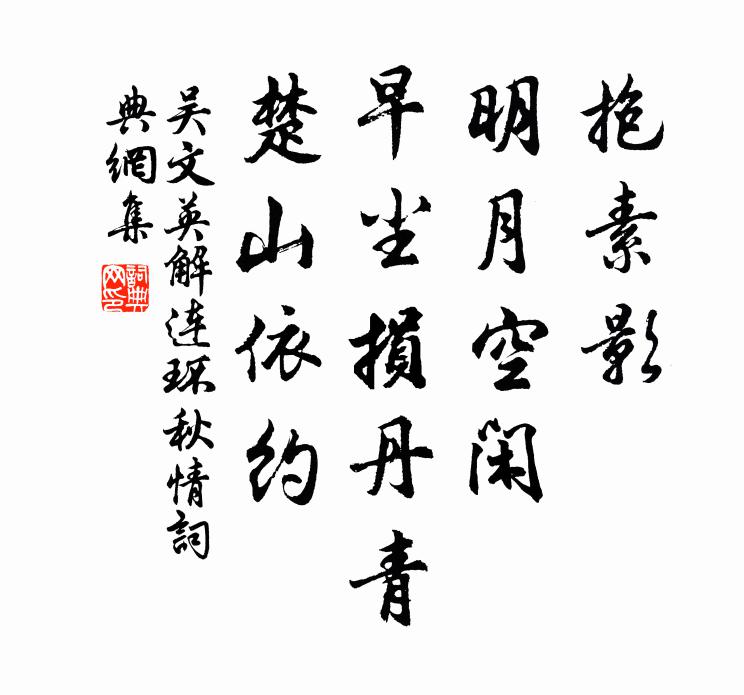 抱素影
明月空闲
早尘損丹青
楚山依约
吴文英解连环秋情詞
典網集
詞典
网印